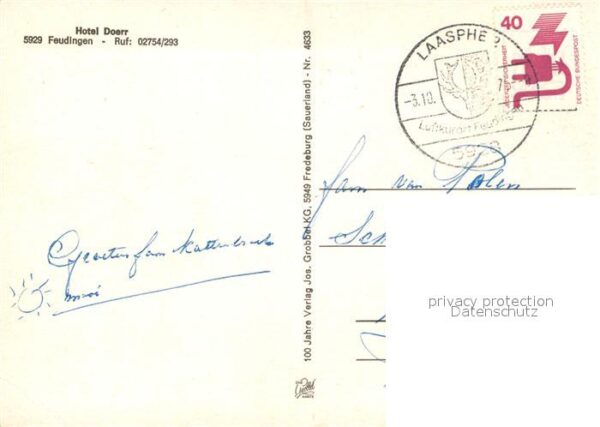 Hotel Doerr
5929 Feudingen - Ruf: 02754/293
100 Jahre Verlag Jos. Grobbel KG, 5949 Fredeburg (Sauerland) - Nr. 4633
LAASPHE 2
-3.10.
Luftkurort Feudingen
5928
40
DEUTSCHE BUNDESPOST
Fam van
Groeten fam
mooi
privacy protection
Datenschutz